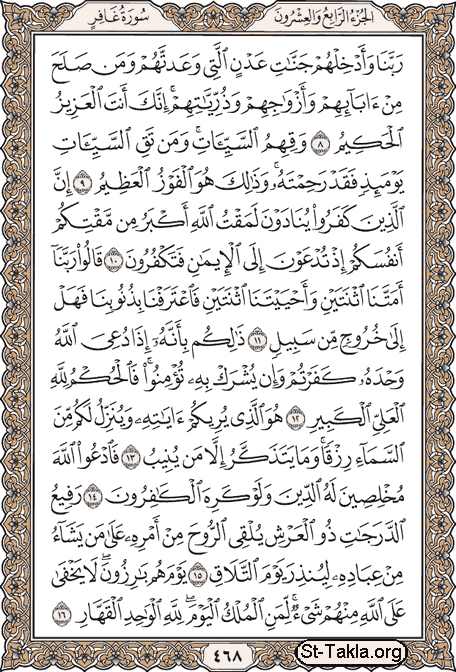 الجزء الرابع والعشرون سورة غافر
رَبَّنَا وَأَدْخِلْهُمْ جَنَّٰتِ عَدْنٍ ٱلَّتِى وَعَدتَّهُمْ وَمَن صَلَحَ
مِنْ ءَابَآئِهِمْ وَأَزْوَٰجِهِمْ وَذُرِّيَّٰتِهِمْ ۚ إِنَّكَ أَنتَ ٱلْعَزِيزُ
ٱلْحَكِيمُ ٨ وَقِهِمُ ٱلسَّيِّـَٔاتِ ۚ وَمَن تَقِ ٱلسَّيِّـَٔاتِ
يَوْمَئِذٍ فَقَدْ رَحِمْتَهُۥ ۚ وَذَٰلِكَ هُوَ ٱلْفَوْزُ ٱلْعَظِيمُ ٩ إِنَّ
ٱلَّذِينَ كَفَرُوا۟ يُنَادَوْنَ لَمَقْتُ ٱللَّهِ أَكْبَرُ مِن مَّقْتِكُمْ
أَنفُسَكُمْ إِذْ تُدْعَوْنَ إِلَى ٱلْإِيمَٰنِ فَتَكْفُرُونَ ١٠ قَالُوا۟ رَبَّنَآ
أَمَتَّنَا ٱثْنَتَيْنِ وَأَحْيَيْتَنَا ٱثْنَتَيْنِ فَٱعْتَرَفْنَا بِذُنُوبِنَا فَهَلْ
إِلَىٰ خُرُوجٍ مِّن سَبِيلٍ ١١ ذَٰلِكُم بِأَنَّهُۥٓ إِذَا دُعِىَ ٱللَّهُ
وَحْدَهُۥ كَفَرْتُمْ ۖ وَإِن يُشْرَكْ بِهِۦ تُؤْمِنُوا۟ ۚ فَٱلْحُكْمُ لِلَّهِ
ٱلْعَلِىِّ ٱلْكَبِيرِ ١٢ هُوَ ٱلَّذِى يُرِيكُمْ ءَايَٰتِهِۦ وَيُنَزِّلُ لَكُم مِّنَ
ٱلسَّمَآءِ رِزْقًا ۚ وَمَا يَتَذَكَّرُ إِلَّا مَن يُنِيبُ ١٣ فَٱدْعُوا۟ ٱللَّهَ
مُخْلِصِينَ لَهُ ٱلدِّينَ وَلَوْ كَرِهَ ٱلْكَٰفِرُونَ ١٤ رَفِيعُ
ٱلدَّرَجَٰتِ ذُو ٱلْعَرْشِ يُلْقِى ٱلرُّوحَ مِنْ أَمْرِهِۦ عَلَىٰ مَن يَشَآءُ
مِنْ عِبَادِهِۦ لِيُنذِرَ يَوْمَ ٱلتَّلَاقِ ١٥ يَوْمَ هُم بَٰرِزُونَ ۖ لَا يَخْفَىٰ
عَلَى ٱللَّهِ مِنْهُمْ شَىْءٌ ۚ لِّمَنِ ٱلْمُلْكُ ٱلْيَوْمَ ۖ لِلَّهِ ٱلْوَٰحِدِ ٱلْقَهَّارِ ١٦
٤٦٨
St-Takla.org